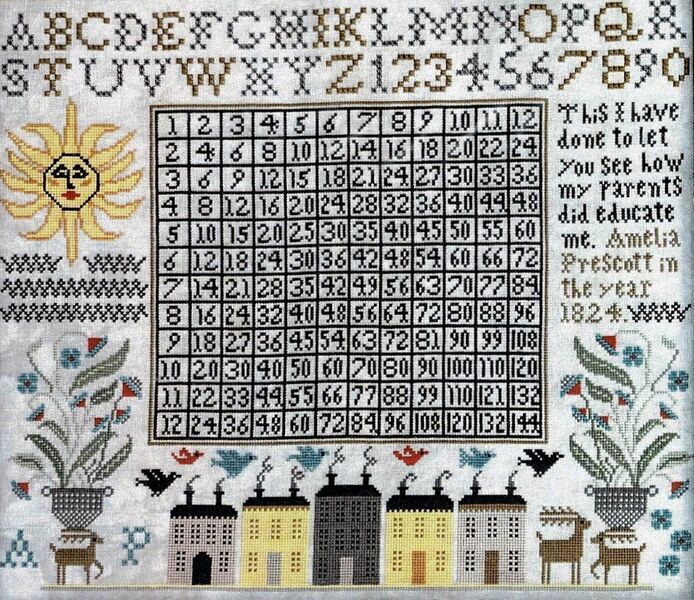 ABCDEFGHIKLMNOPQR
STUVWXYZ1234567890
1 2 3 4 5 6 7 8 9 10 11 12
2 4 6 8 10 12 14 16 18 20 22 24
3 6 9 12 15 18 21 24 27 30 33 36
4 8 12 16 20 24 28 32 36 40 44 48
5 10 15 20 25 30 35 40 45 50 55 60
6 12 18 24 30 36 42 48 54 60 66 72
7 14 21 28 35 42 49 56 63 70 77 84
8 16 24 32 40 48 56 64 72 80 88 96
9 18 27 36 45 54 63 72 81 90 99 108
10 20 30 40 50 60 70 80 90 100 110 120
11 22 33 44 55 66 77 88 99 110 121 132
12 24 36 48 60 72 84 96 108 120 132 144
This I have
done to let
you see how
my parents
did educate
me. Amelia
Prescott in
the year
1824.
A P